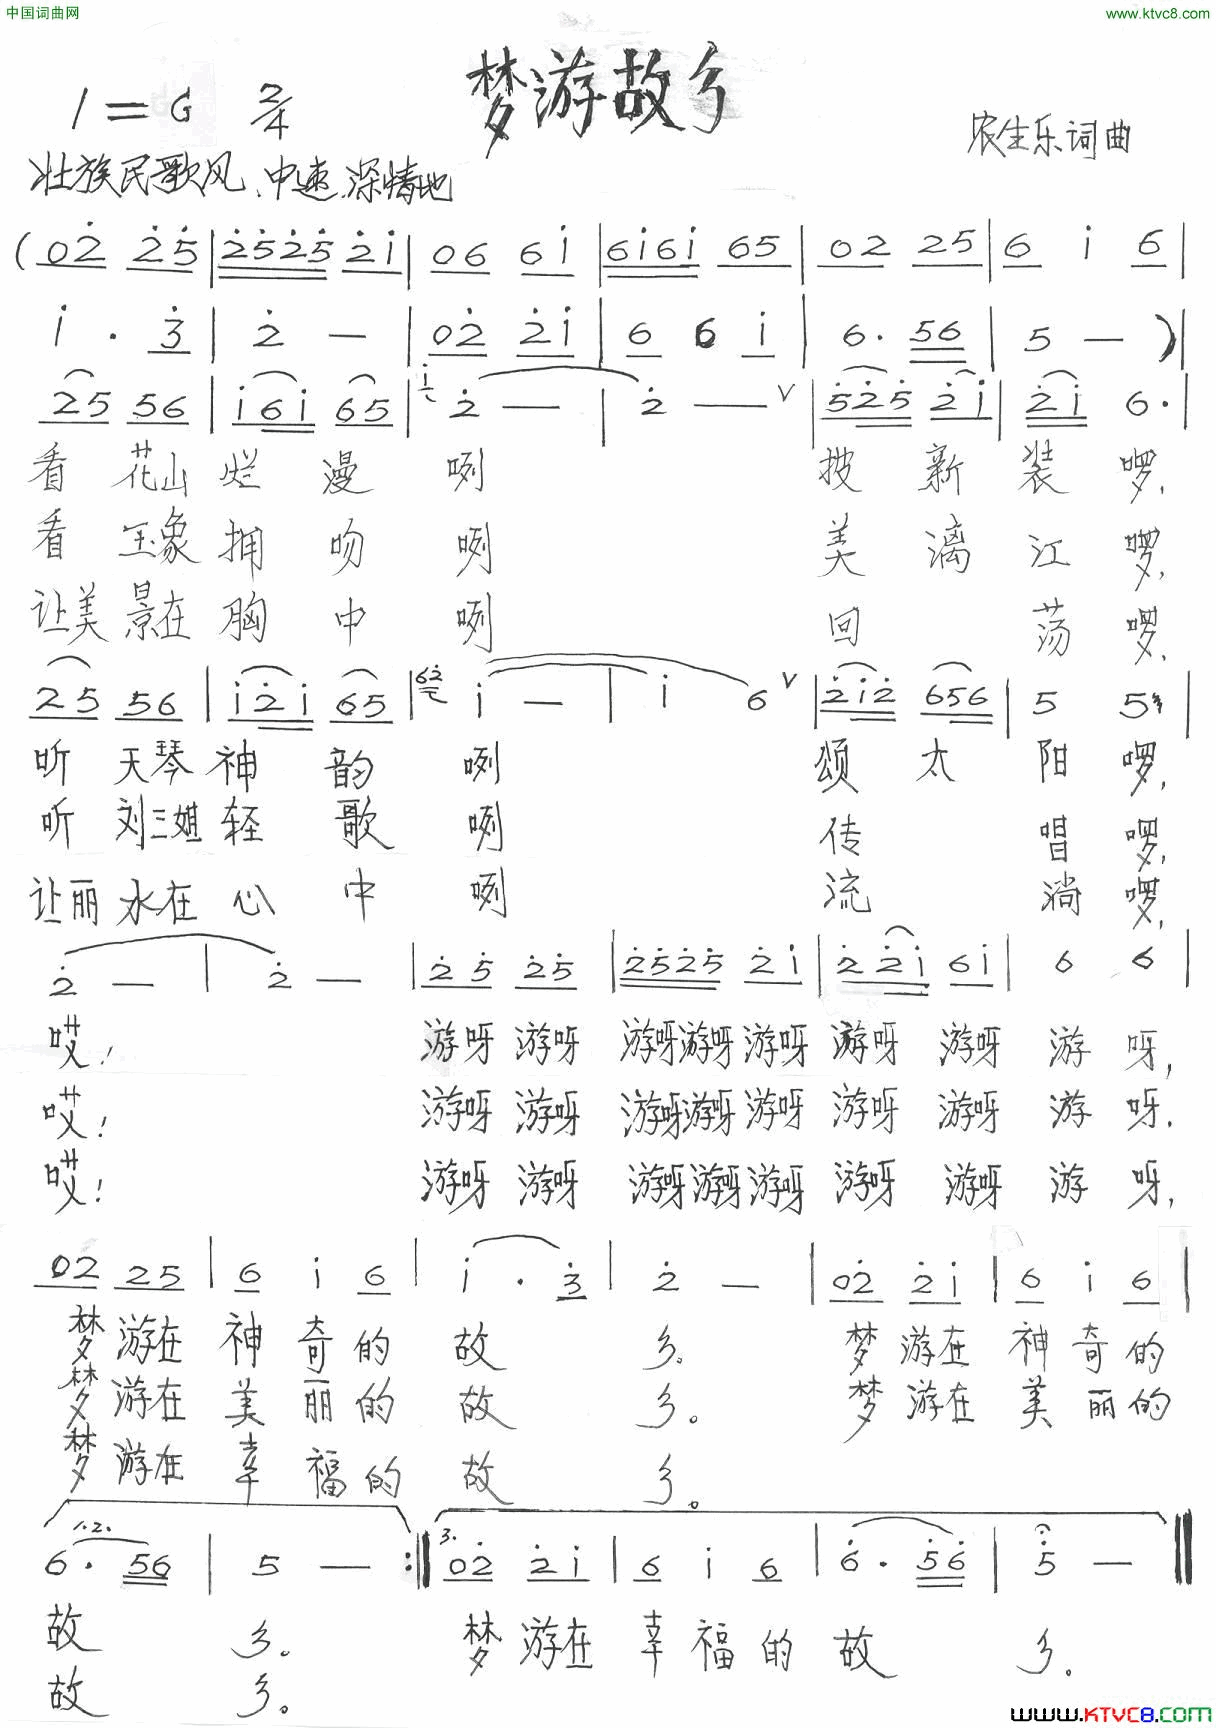 中国词曲网
www.ktvc8.com
梦游故乡
1=G 2/4
农生乐词曲
壮族民歌风、中速、深情地
(02̇ 2̇5̇ | 2̇5̇2̇5̇ 2̇i | 06 6i | 6i6i 65 | 02 25 | 6 i 6 |
i · 3̇ | 2̇ — | 02̇ 2̇i | 6 6 i | 6· 56 | 5 — ) |
25 56 | i6i 65 | i 2̇ — | 2̇ — ∨ | 5̇2̇5̇ 2̇i | 2̇i 6· |
看 花山 烂 漫 咧 披 新 装 啰,
看 玉象 拥 吻 咧 美 漓 江 啰,
让美 景在 胸 中 咧 回 荡 啰,
25 56 | i2̇i 65 | 62̇ i — | i 6 ∨ | 2̇i2̇ 656 | 5 5 |
听 天琴 神 韵 咧 颂 太 阳 啰,
听 刘三姐 轻 歌 咧 传 唱 啰,
让丽 水在 心 中 咧 流 淌 啰,
2̇ — | 2̇ — | 2̇5̇ 2̇5̇ | 2̇5̇2̇5̇ 2̇i | 2̇2̇i 6i | 6 6 |
哎! 游呀 游呀 游呀游呀 游呀 游呀 游呀 游 呀,
哎! 游呀 游呀 游呀游呀 游呀 游呀 游呀 游 呀,
哎! 游呀 游呀 游呀游呀 游呀 游呀 游呀 游 呀,
02 25 | 6 i 6 | i · 3̇ | 2̇ — | 02̇ 2̇i | 6 i 6 |
梦 游在 神 奇 的 故 乡。 梦 游在 神 奇 的
梦 游在 美 丽 的 故 乡。 梦 游在 美 丽 的
梦 游在 幸 福 的 故 乡。
1.2.
3.
6· 56 | 5 — :‖ 02̇ 2̇i | 6 i 6 | 6̇· 5̇6̇ | 5̇ — ‖
故 乡。 梦 游在 幸 福 的 故 乡。
故 乡。
www.KTVC8.com